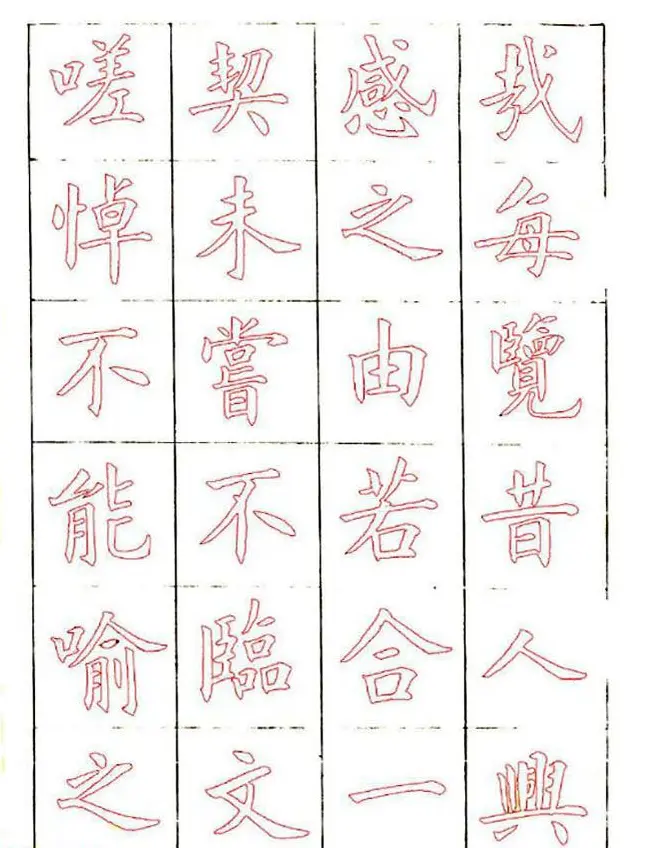 哉每覽昔人興
感之由若合一
契未嘗不臨文
嗟悼不能喻之